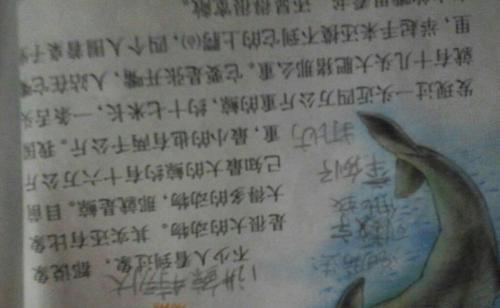 不少人看到过象，都说象
是很大的动物。其实还有比象
大得多的动物，那就是鲸。目前
已知最大的鲸约有十六万公斤
重，最小的也有两千公斤。我国
发现过一头近四万公斤重的鲸，约十七米长，一条舌头
就有十几头大肥猪那么重。它要是张开嘴，人站在它嘴
里，举起手来还摸不到它的上腭(è)，四个人围着桌子
列数字
举例子
打比方